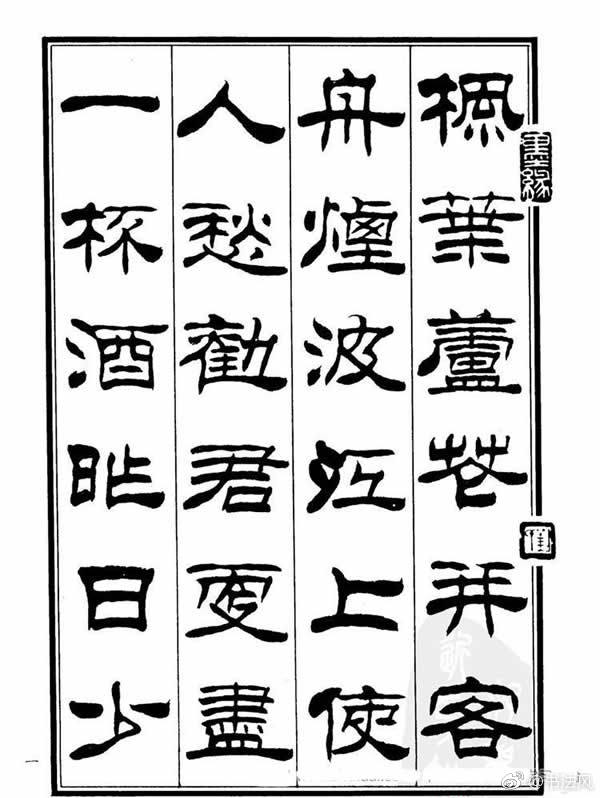 楓葉蘆花并客
舟煙波江上使
人愁勸君更盡
一杯酒昨日少
墨緣
一
@书法风